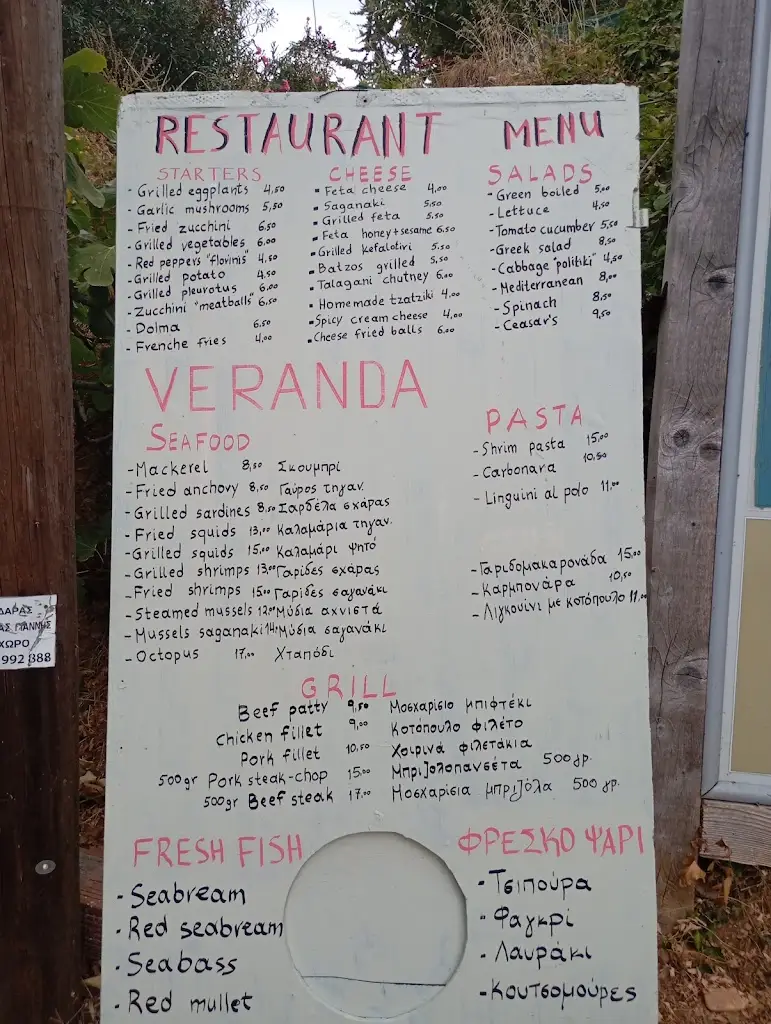 RESTAURANT MENU
STARTERS
- Grilled eggplants 4,50
- Garlic mushrooms 5,50
- Fried zucchini 6.50
- Grilled vegetables 6.00
- Red peppers "florinis" 4,50
- Grilled potato 4.50
- Grilled pleurotus 6.00
- Zucchini "meatballs" 6,50
- Dolma 6.50
- Frenche fries 4,00
CHEESE
- Feta cheese 4,00
- Saganaki 5.50
- Grilled feta 5.50
- Feta honey+sesame 6.50
- Grilled kefalotiri 5.50
- Batzos grilled 5,50
- Talagani chutney 6.00
- Homemade tzatziki 4.00
- Spicy cream cheese 4,00
- Cheese fried balls 6.00
SALADS
- Green boiled 5,00
- Lettuce 4,50
- Tomato cucumber 5,50
- Greek salad 8,50
- Cabbage "politiki" 4,50
- Mediterranean 8,00
- Spinach 8,50
- Ceasar's 9,50
VERANDA
SEAFOOD
- Mackerel 8,50 Σκουμπρί
- Fried anchovy 8,50 Γαύρος τηγαν.
- Grilled sardines 8,50 Σαρδέλα σχάρας
- Fried squids 13,00 Καλαμάρια τηγαν.
- Grilled squids 15,00 Καλαμάρι ψητό
- Grilled shrimps 13,00 Γαρίδες σχάρας
- Fried shrimps 15,00 Γαρίδες σαγανάκι
- Steamed mussels 12,00 Μύδια αχνιστά
- Mussels saganaki 14,00 Μύδια σαγανάκι
- Octopus 17,00 Χταπόδι
PASTA
- Shrim pasta 15,00
- Carbonara 10,50
- Linguini al polo 11,00
- Γαριδομακαρονάδα 15,00
- Καρμπονάρα 10,50
- Λιγκουίνι με κοτόπουλο 11,00
GRILL
Beef patty 9,50 Μοσχαρίσιο μπιφτέκι
Chicken fillet 9,00 Κοτόπουλο φιλέτο
Pork fillet 10,50 Χοιρινά φιλετάκια
500gr Pork steak-chop 15,00 Μπριζολοπανσέτα 500γρ.
500gr Beef steak 17,00 Μοσχαρίσια μπριζόλα 500 γρ.
FRESH FISH
- Seabream
- Red seabream
- Seabass
- Red mullet
ΦΡΕΣΚΟ ΨΑΡΙ
- Τσιπούρα
- Φαγκρί
- Λαυράκι
- Κουτσομούρες
ΔΑΡΑΣ
ΑΣ ΓΙΑΝΝΗΣ
ΧΩΡΟ
992 888